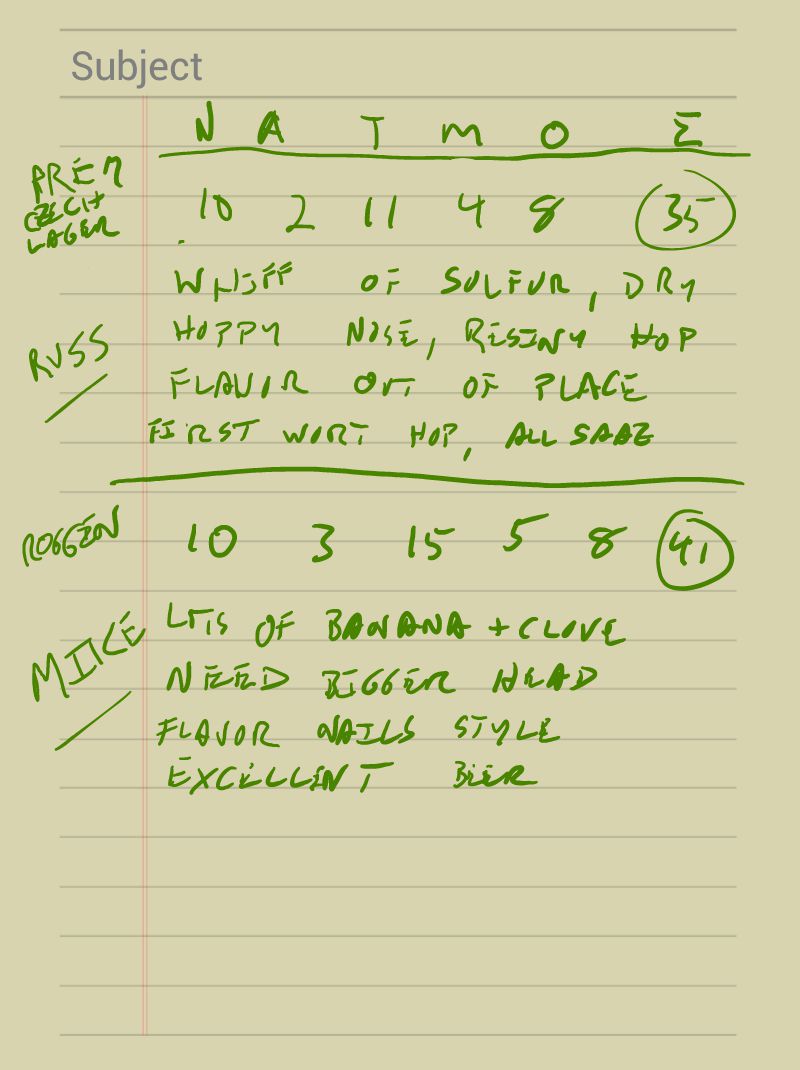 Subject
N A T M O Σ
PREM
CZECH
LAGER
10 2 11 4 8 35
WHIFF OF SULFUR, DRY
HOPPY NOSE, RESINY HOP
RUSS
FLAVOR OUT OF PLACE
FIRST WORT HOP, ALL SAAZ
ROGGEN 10 3 15 5 8 41
LOTS OF BANANA + CLOVE
MIKE
NEED BIGGER HEAD
FLAVOR NAILS STYLE
EXCELLENT BIER